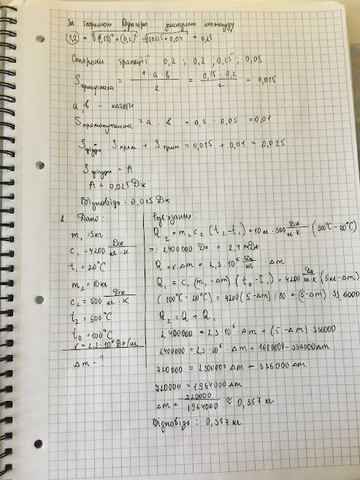 За теоремою Піфагора
Сторони трапеції: 0,2 ; 0,2 ; 0,25 ; 0,05
S трикутника = 1·a·b / 2 = 0,15·0,2 / 2 = 0,015
a, b - катети
S прямокутника = a · b = 0,2 · 0,05 = 0,01
S фігури = S прям + S трик = 0,015 + 0,01 = 0,025
S фігури = A
A = 0,025 Дж
Відповідь: 0,025 Дж
Дано:
m₁ = 5кг
c₁ = 4200 Дж/кг·К
t₁ = 20°C
m₂ = 10кг
c₂ = 600 Дж/кг·К
t₂ = 500°C
t₀ = 100°C
r = 2,3·10⁶ Дж/кг
Δm - ?
Розв'язання:
= 2400000 Дж = 2,4 мДж
Q = rΔm = 2,3·10⁶ Дж/кг · Δm
Q₁ = c₁(m₁-Δm)(t₀-t₁) = 4200 Дж/кг·К (5кг-Δm)
(100°C-20°C) = 4200(5-Δm)·80 = (5-Δm)·336000
Q₂ = Q + Q₁
2400000 = 2,3·10⁶·Δm + (5-Δm)·336000
2400000 = 2,3·10⁶·Δm + 1680000 - 336000Δm
720000 = 2300000Δm - 336000Δm
720000 = 1964000Δm
Δm = 720000 / 1964000 ≈ 0,367 кг
Відповідь: 0,367 кг